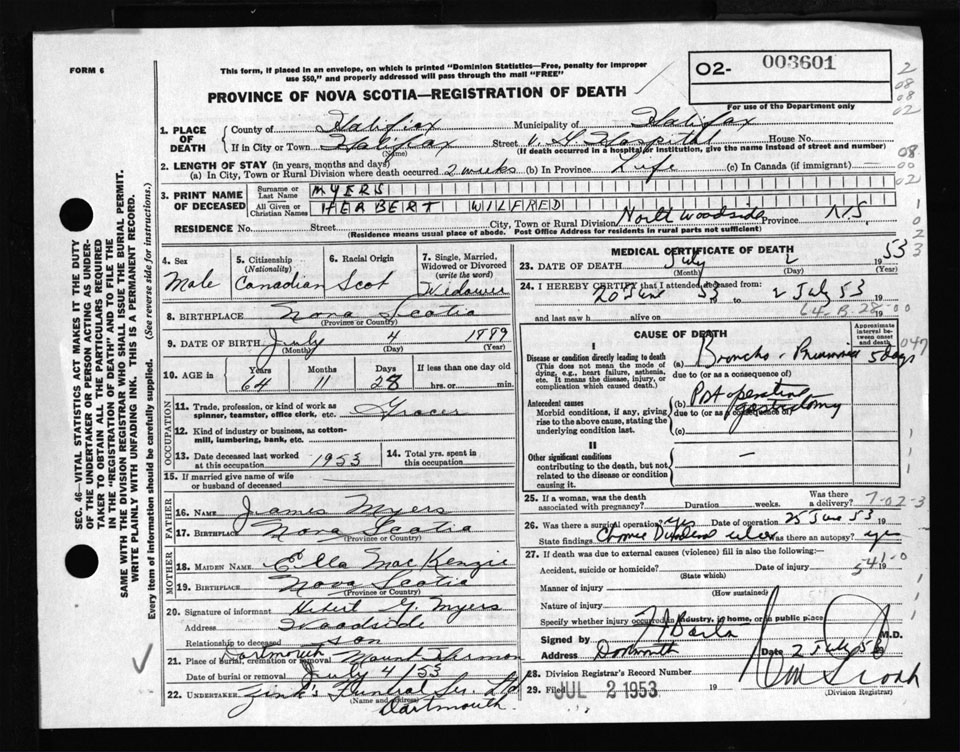 FORM 6
This form, if placed in an envelope, on which is printed "Dominion Statistics—Free, penalty for improper
use $50," and properly addressed will pass through the mail "FREE"
02- 003601
PROVINCE OF NOVA SCOTIA—REGISTRATION OF DEATH
For use of the Department only
2
08
08
02
1. PLACE OF DEATH
County of Halifax Municipality of Halifax
If in City or Town Halifax Street V. G. Hospital House No.
(Name) (If death occurred in a hospital or institution, give the name instead of street and number)
2. LENGTH OF STAY (in years, months and days)
(a) In City, Town or Rural Division where death occurred 2 weeks (b) In Province Life (c) In Canada (if immigrant) —
08
00
02
3. PRINT NAME OF DECEASED
Surname or Last Name MYERS
All Given or Christian Names HERBERT WILFRED
RESIDENCE No. Street City, Town or Rural Division North Woodside Province N.S.
(Residence means usual place of abode. Post Office Address for residents in rural parts not sufficient)
4. Sex Male
5. Citizenship (Nationality) Canadian
6. Racial Origin Scot
7. Single, Married, Widowed or Divorced (write the word) Widower
8. BIRTHPLACE Nova Scotia
(Province or Country)
9. DATE OF BIRTH July 4 1889
(Month) (Day) (Year)
10. AGE in Years 64 Months 11 Days 28 If less than one day old
hrs. or min.
OCCUPATION
11. Trade, profession, or kind of work as spinner, teamster, office clerk, etc. Grocer
12. Kind of industry or business, as cotton-mill, lumbering, bank, etc.
13. Date deceased last worked at this occupation 1953
14. Total yrs. spent in this occupation
15. If married give name of wife or husband of deceased
FATHER
16. Name James Myers
17. Birthplace Nova Scotia
(Province or Country)
MOTHER
18. MAIDEN NAME Ella MacKenzie
19. BIRTHPLACE Nova Scotia
(Province or Country)
20. Signature of informant G. Myers
Address Woodside
Relationship to deceased son
21. Place of burial, cremation or removal Dartmouth Mount Hermon
Date of burial or removal July 4 /53
22. UNDERTAKER Zink's Funeral Ser. Ltd
(Name and address)
Dartmouth.
MEDICAL CERTIFICATE OF DEATH
23. DATE OF DEATH July 2 1953
(Month) (Day) (Year)
24. I HEREBY CERTIFY that I attended deceased from:
20 June 53 to 2 July 53 19
and last saw h alive on 19
CAUSE OF DEATH
Approximate interval between onset and death
I
Disease or condition directly leading to death
(This does not mean the mode of dying, e.g., heart failure, asthenia, etc. It means the disease, injury, or complication which caused death.)
(a) Broncho-Pneumonia 5 days
due to (or as a consequence of)
Antecedent causes
Morbid conditions, if any, giving rise to the above cause, stating the underlying condition last.
(b) Post operative
due to (or as a consequence of)
(c)
II
Other significant conditions
contributing to the death, but not related to the disease or condition causing it.
—
25. If a woman, was the death associated with pregnancy? Duration weeks. Was there a delivery?
7-02-3
26. Was there a surgical operation? yes Date of operation 25 June 53 19
State findings Chronic Duodenal ulcer Was there an autopsy? yes
27. If death was due to external causes (violence) fill in also the following:
541-0
Accident, suicide or homicide? Date of injury 19
(State which)
Manner of injury
(How sustained)
Nature of injury
Specify whether injury occurred in industry, in home, or in public place
Signed by M.D.
Address Dartmouth Date 2 July 53
28. Division Registrar's Record Number
29. Filed JUL 2 1953 19
(Division Registrar)
SEC. 46—VITAL STATISTICS ACT MAKES IT THE DUTY
OF THE UNDERTAKER OR PERSON ACTING AS UNDER-
TAKER TO OBTAIN ALL THE PARTICULARS REQUIRED
IN THE "REGISTRATION OF DEATH" AND TO FILE THE
SAME WITH THE DIVISION REGISTRAR WHO SHALL ISSUE THE BURIAL PERMIT.
WRITE PLAINLY WITH UNFADING INK. THIS IS A PERMANENT RECORD.
Every item of information should be carefully supplied. (See reverse side for instructions.)